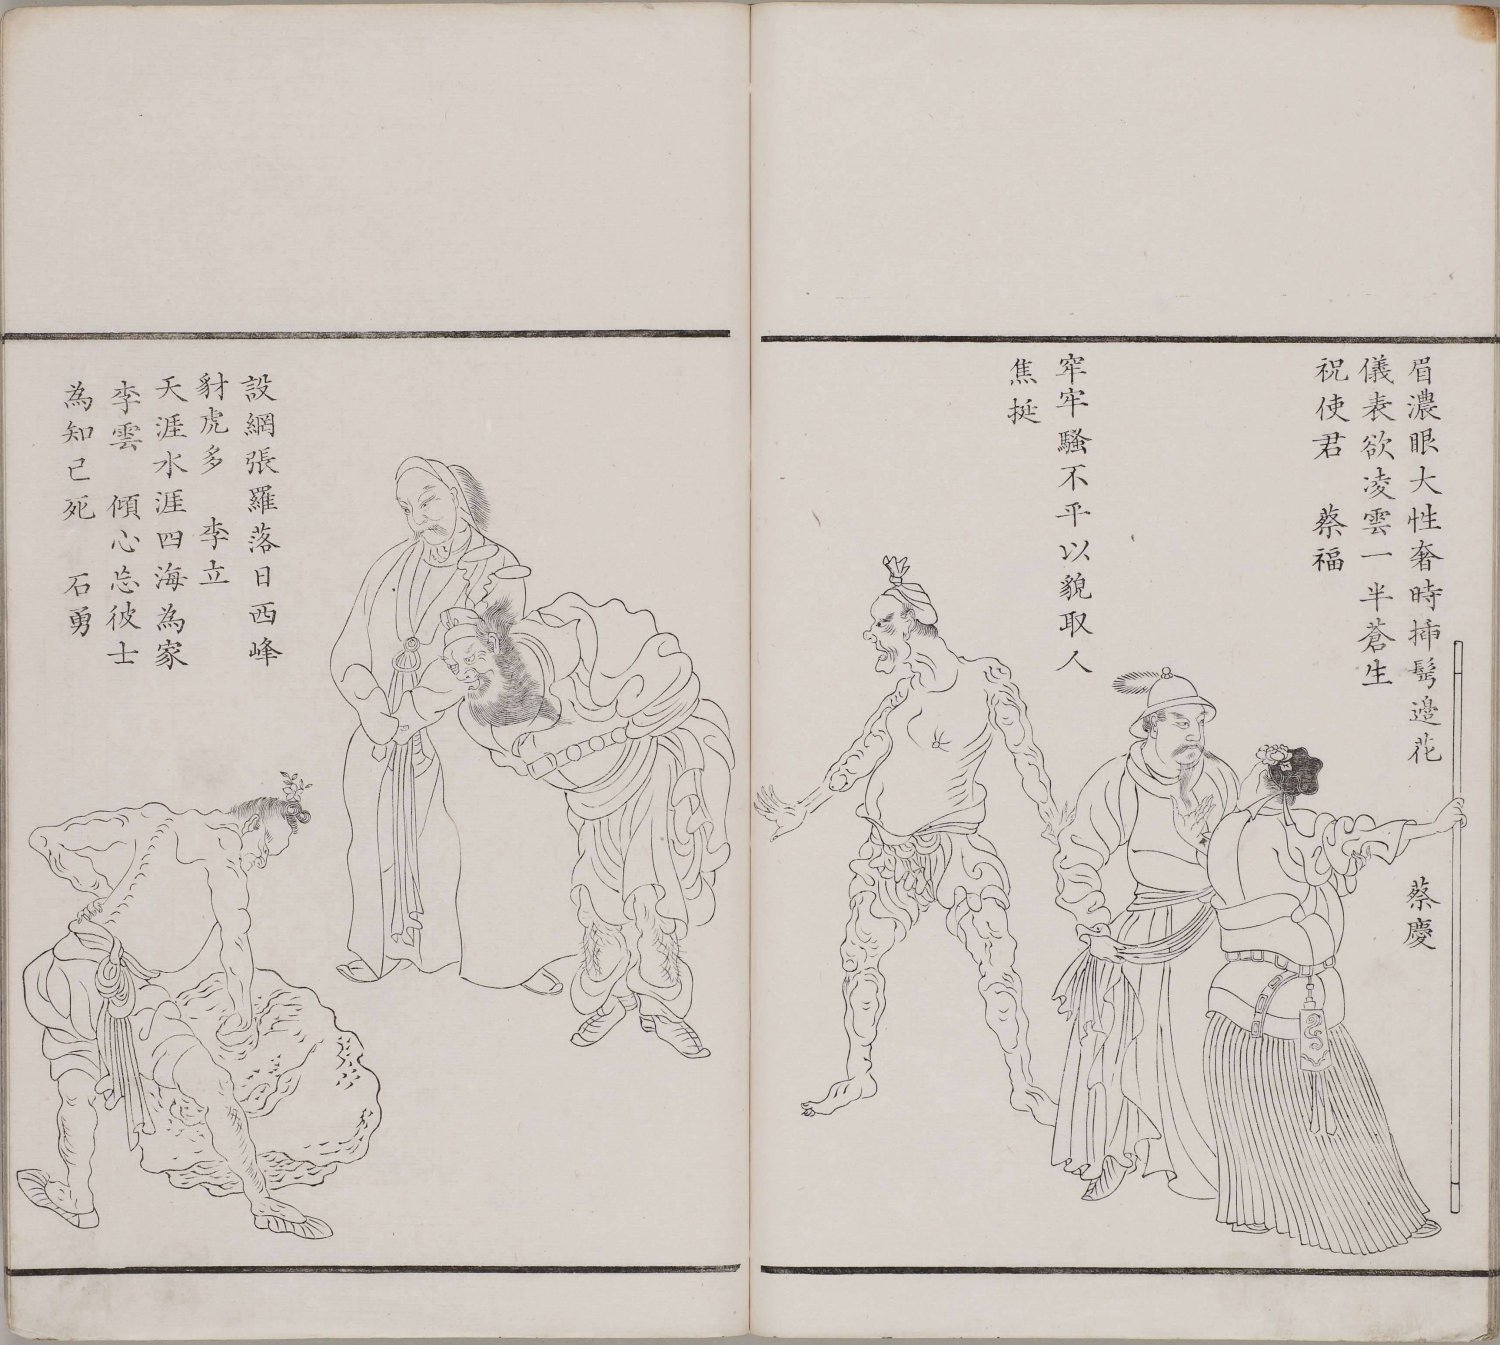 眉濃眼大性奢時揷鬂邊花　蔡慶
儀表欲凌雲一半蒼生
祝使君　蔡福
牢牢騷不平以貌取人
焦挺
設網張羅落日西峰
豺虎多　李立
天涯水涯四海為家
李雲　傾心忘彼士
為知己死　石勇